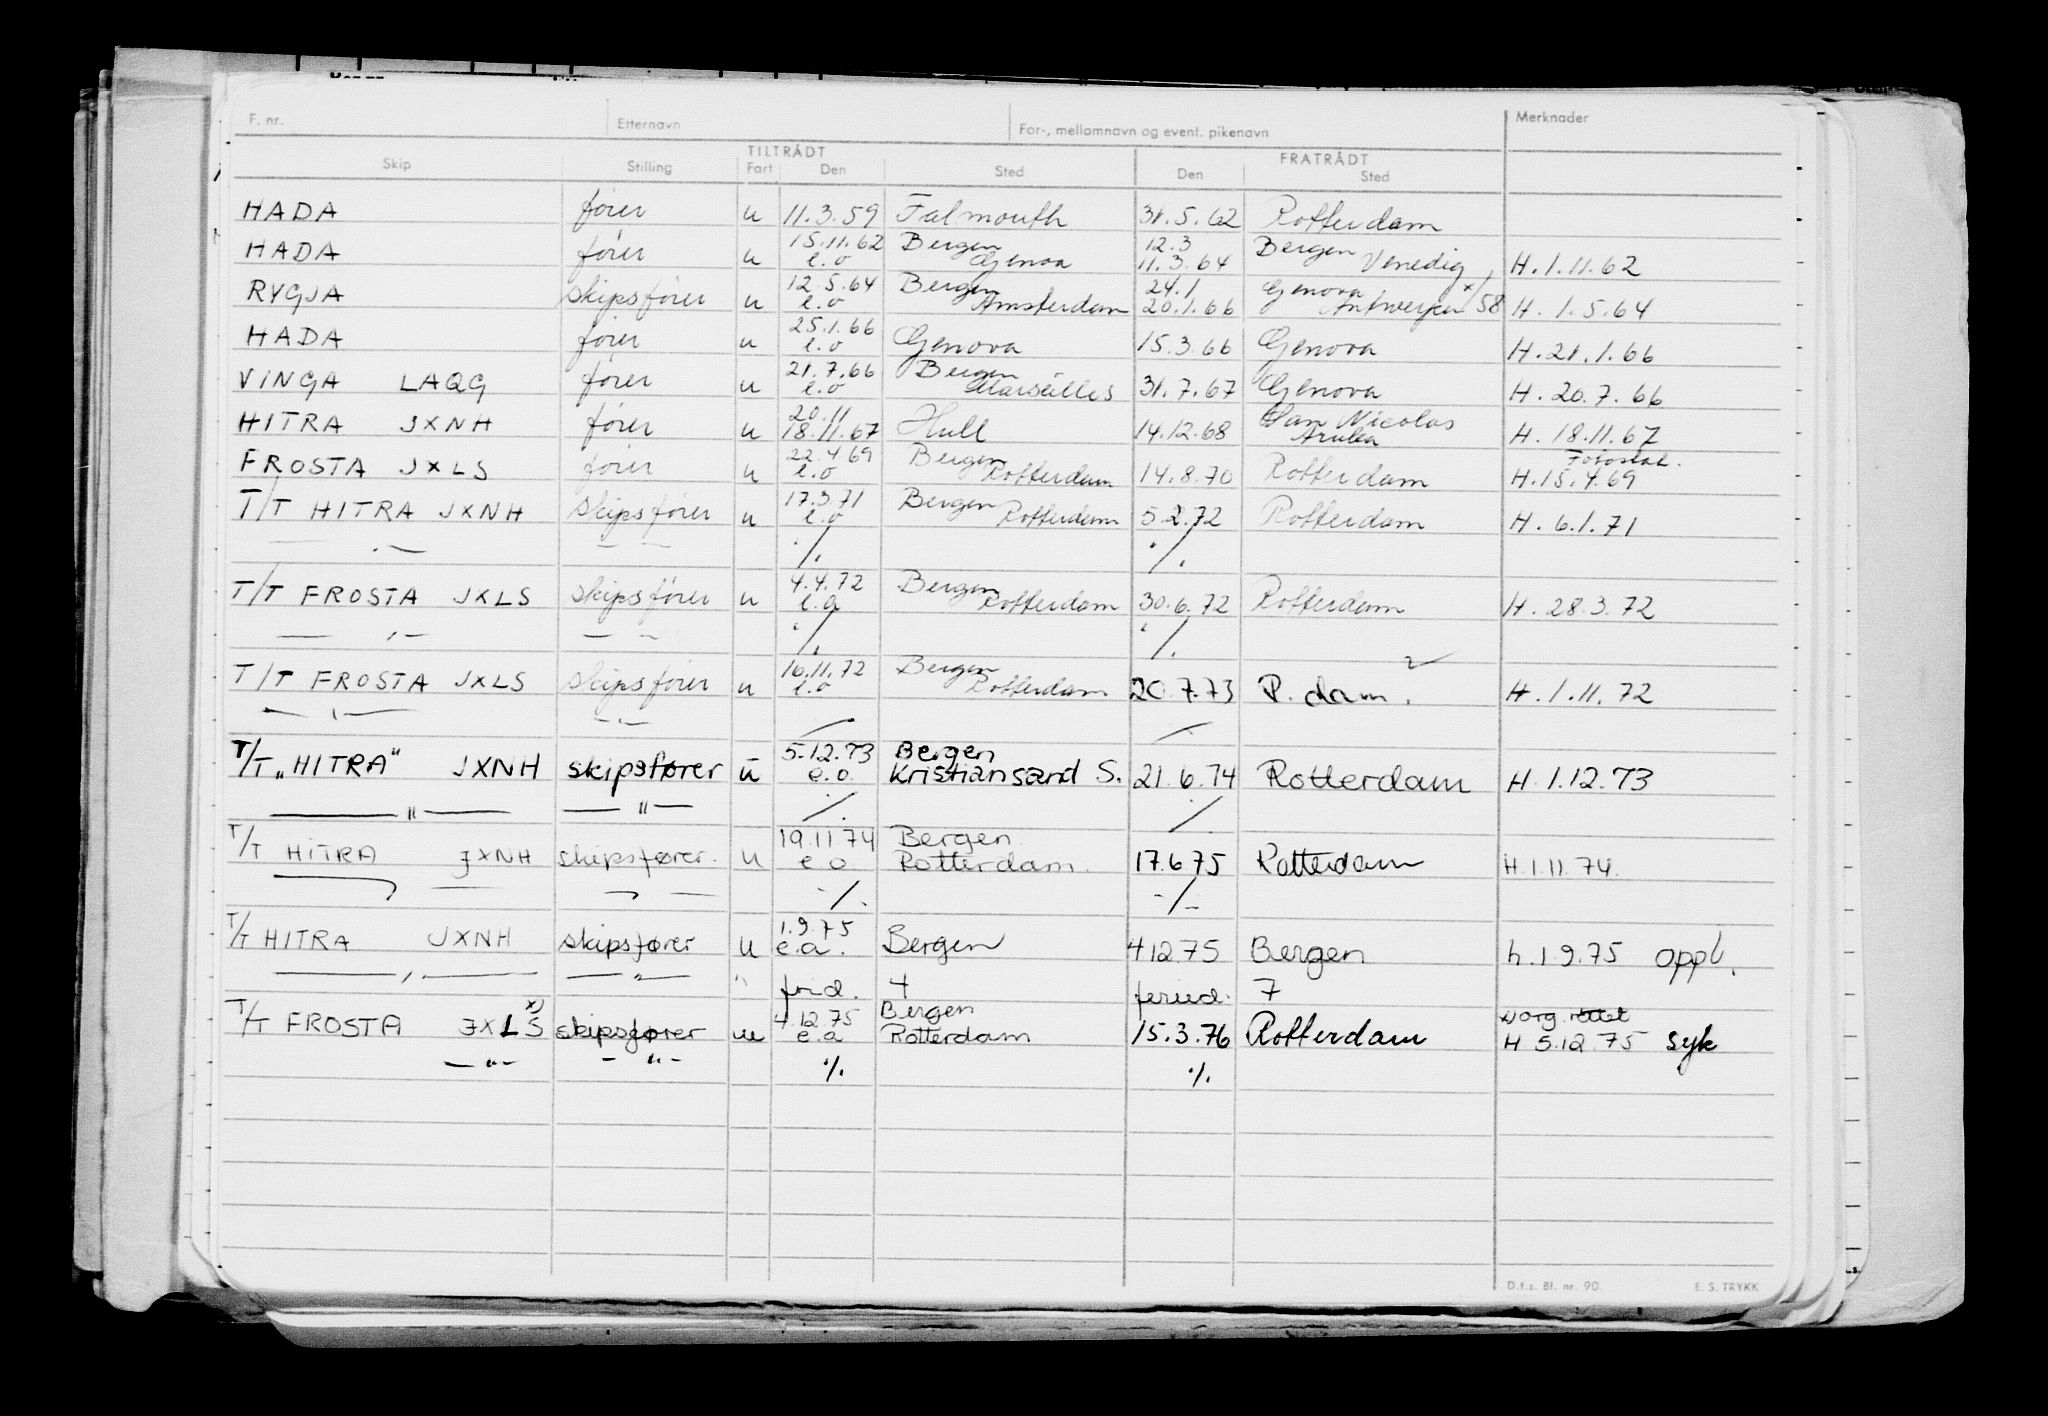 F. nr. Etternavn For-, mellomnavn og event. pikenavn Merknader
TILTRÅDT FRATRÅDT
Skip Stilling Fart Den Sted Den Sted
HADA fører u 11.3.59 Falmouth 31.5.62 Rotterdam
15.11.62 Bergen 12.3 Bergen
HADA fører u e.o Genoa 11.3.64 Venedig H. 1.11.62
12.5.64 Bergen 24.1 Genova x)
RYGJA skipsfører u e.o Amsterdam 20.1.66 Antwerpen 58 H. 1.5.64
25.1.66
HADA fører u e.o Genova 15.3.66 Genova H. 21.1.66
21.7.66 Bergen
VINGA LAQG fører u e.o Marseilles 31.7.67 Genova H. 20.7.66
20.11 San Nicolas
HITRA JXNH fører u 18.11.67 Hull 14.12.68 Aruba H. 18.11.67
22.4.69 Bergen Fotostat.
FROSTA JXLS fører u e.o Rotterdam 14.8.70 Rotterdam H. 15.4.69
17.3.71 Bergen
T/T HITRA JXNH skipsfører u e.o Rotterdam 5.2.72 Rotterdam H. 6.1.71
./. ./.
4.4.72 Bergen
T/T FROSTA JXLS skipsfører u e.a Rotterdam 30.6.72 Rotterdam H. 28.3.72
./. ./.
16.11.72 Bergen
T/T FROSTA JXLS skipsfører u e.o Rotterdam 20.7.73 R.dam. H. 1.11.72
5.12.73 Bergen
T/T "HITRA" JXNH skipsfører u e.o. Kristiansand S. 21.6.74 Rotterdam H. 1.12.73
— " — — " — ./. ./.
19.11.74 Bergen
T/T HITRA JXNH skipsfører. u e o Rotterdam. 17.6.75 Rotterdam H. 1.11.74.
-/. -/-
1.9.75
T/T HITRA JXNH skipsfører u e.a. Bergen 4.12.75 Bergen h. 1.9.75 oppl.
— , — — " — " frid. 4 feried. 7
x) 4.12.75 Bergen
T/T FROSTA JXLS skipsfører u e.a Rotterdam 15.3.76 Rotterdam H 5.12.75 syk
— " — — " — ./. ./.
D.f.s. Bl. nr. 90. E. S. TRYKK